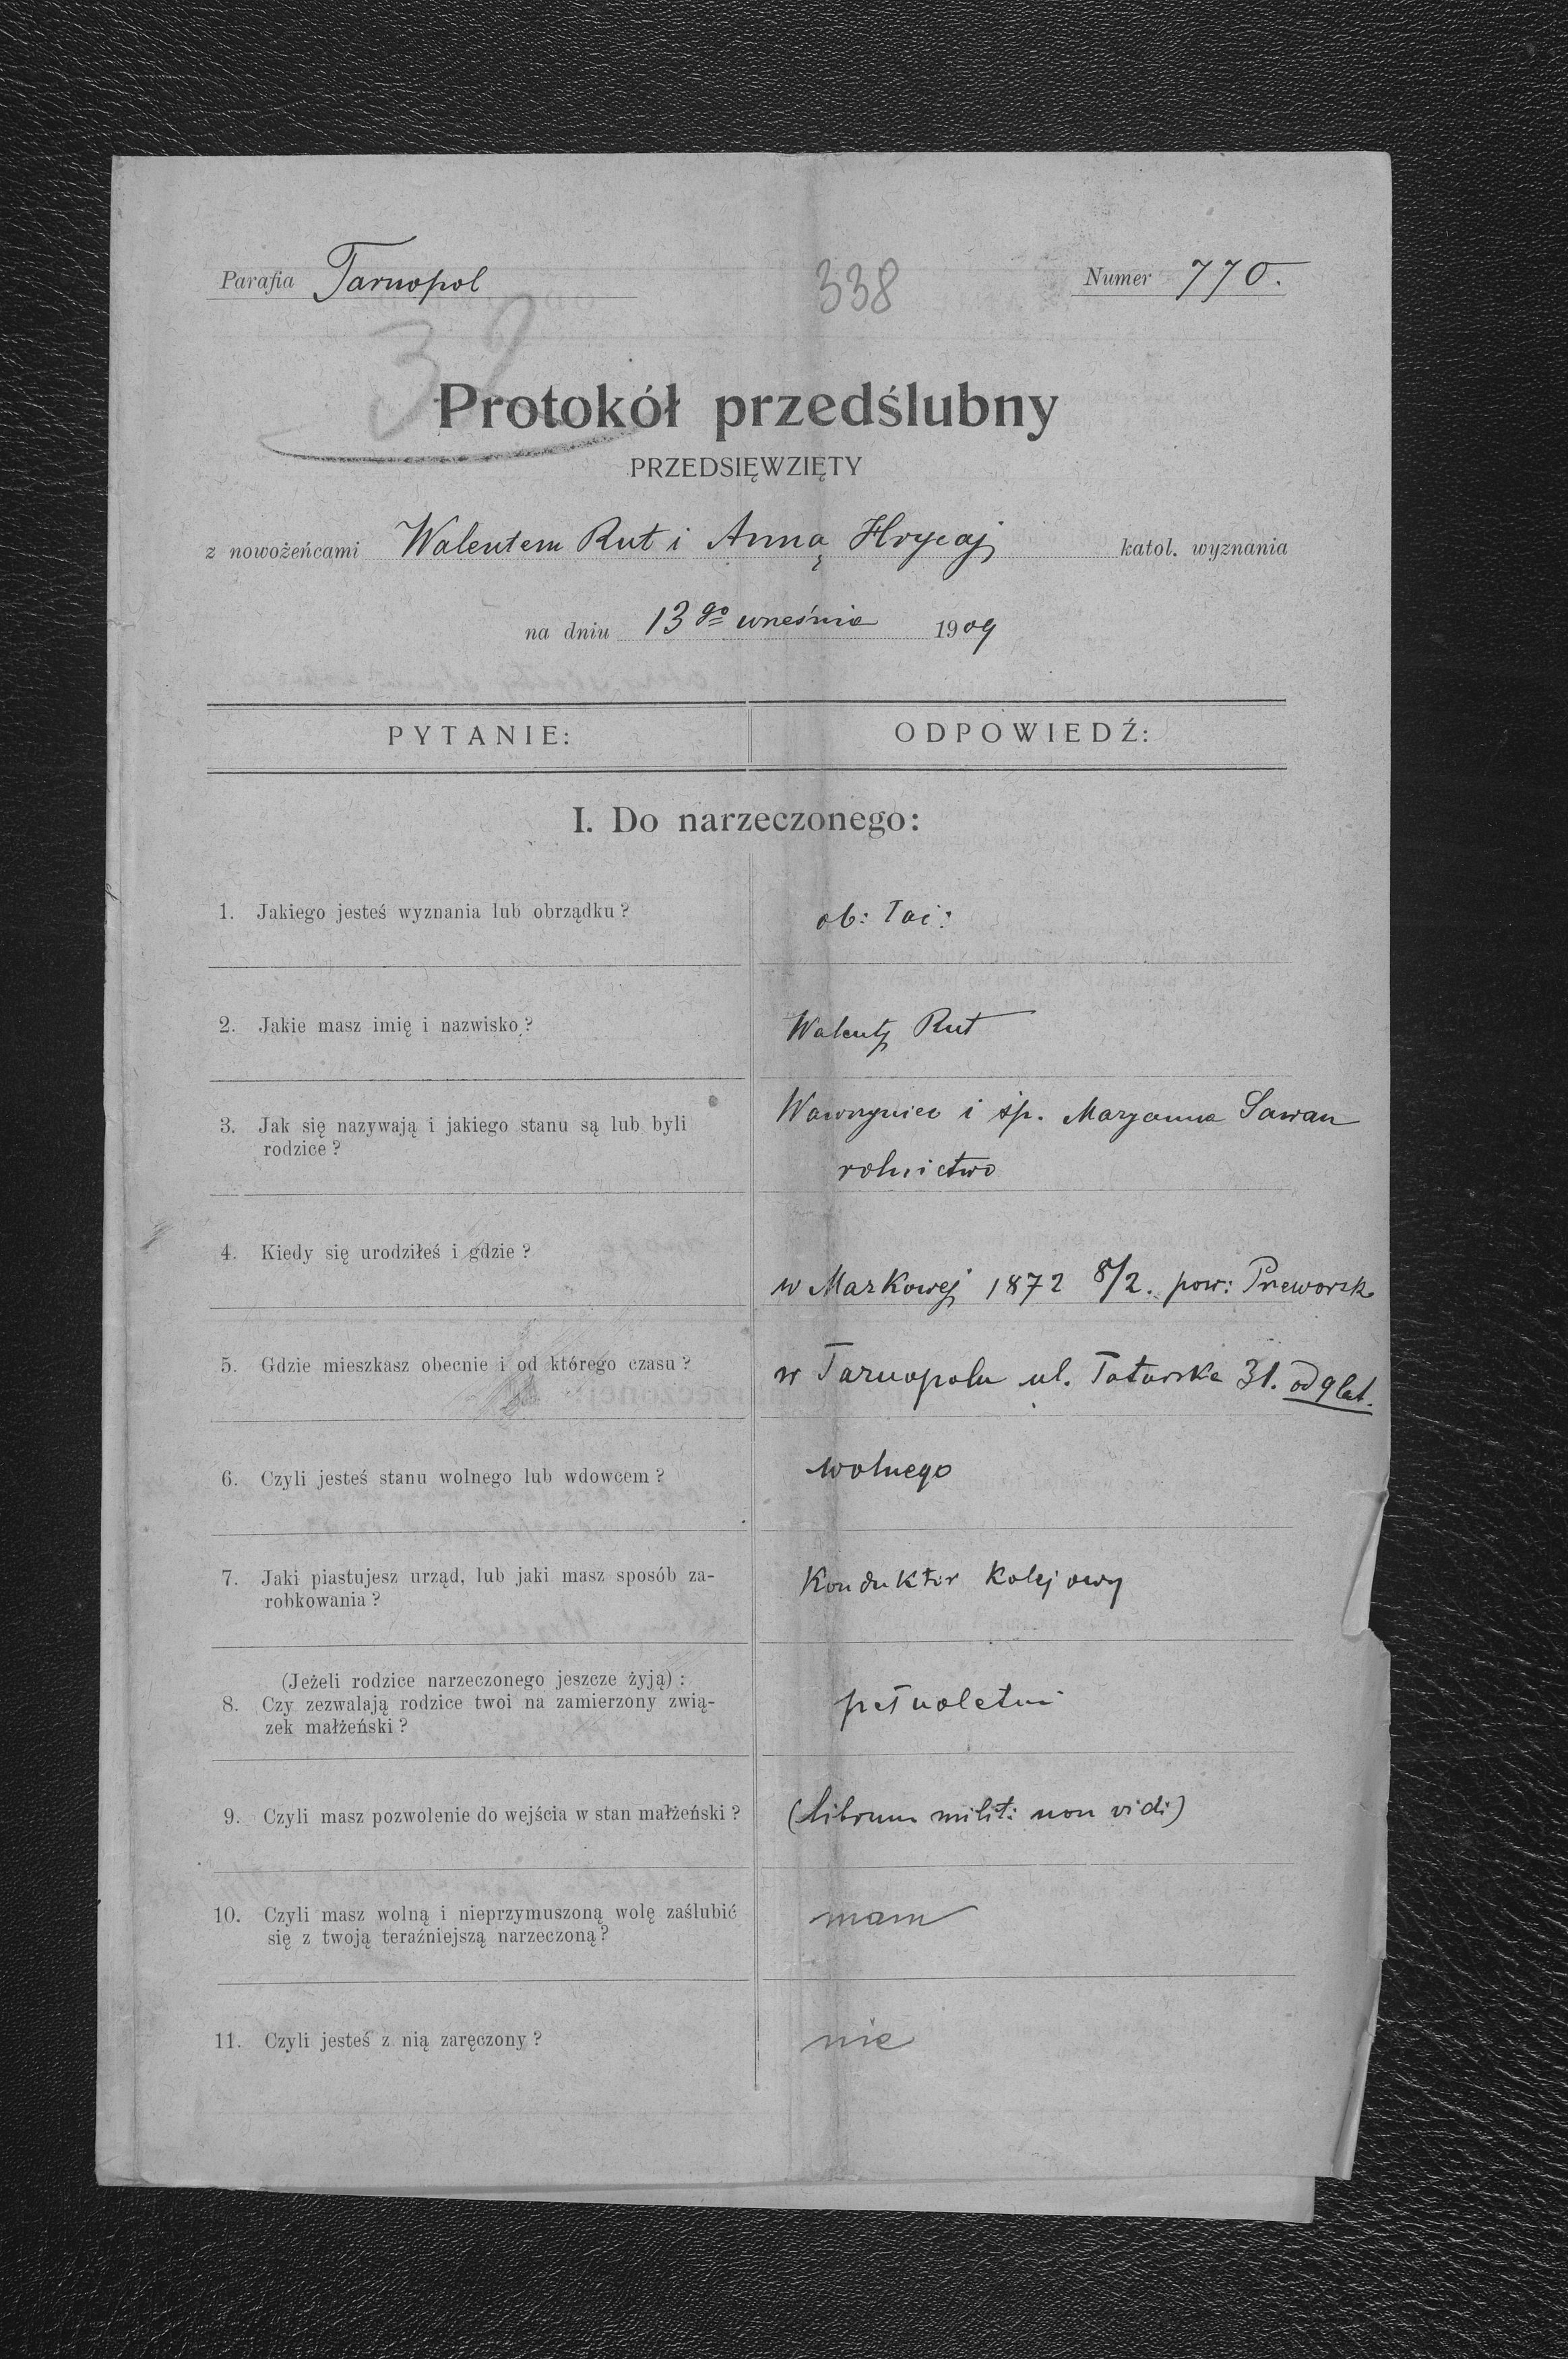 Parafia Tarnopol 338 Numer 770.
32
Protokół przedślubny
PRZEDSIĘWZIĘTY
z nowożeńcami Walentem Rut i Anną Hrycaj katol. wyznania
na dniu 13go września 1909
PYTANIE: ODPOWIEDŹ:
I. Do narzeczonego:
1. Jakiego jesteś wyznania lub obrządku? ob: łać:
2. Jakie masz imię i nazwisko? Walenty Rut
3. Jak się nazywają i jakiego stanu są lub byli Wawrzyniec i śp. Maryanna Sawan
rodzice? rolnictwo
4. Kiedy się urodziłeś i gdzie? w Markowej 1872 8/2. pow: Przeworsk
5. Gdzie mieszkasz obecnie i od którego czasu? w Tarnopolu ul. Tatarska 31. od 9 lat.
6. Czyli jesteś stanu wolnego lub wdowcem? wolnego
7. Jaki piastujesz urząd, lub jaki masz sposób za- Konduktor Kolejowy
robkowania?
(Jeżeli rodzice narzeczonego jeszcze żyją):
8. Czy zezwalają rodzice twoi na zamierzony zwią- pełnoletni
zek małżeński?
9. Czyli masz pozwolenie do wejścia w stan małżeński? (librum milit: non vidi)
10. Czyli masz wolną i nieprzymuszoną wolę zaślubić mam
się z twoją teraźniejszą narzeczoną?
11. Czyli jesteś z nią zaręczony? nie